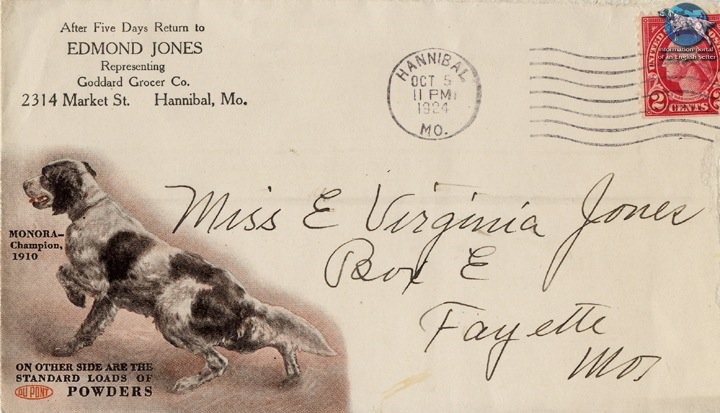 After Five Days Return to
EDMOND JONES
Representing
Goddard Grocer Co.
2314 Market St. Hannibal, Mo.
HANNIBAL
OCT 5
11 PM
1924
MO.
information portal
of an English Setter
UNITED
2 CENTS 2
MONORA—
Champion,
1910
Miss E Virginia Jones
Box E
Fayette
Mo
ON OTHER SIDE ARE THE
STANDARD LOADS OF
DU PONT POWDERS